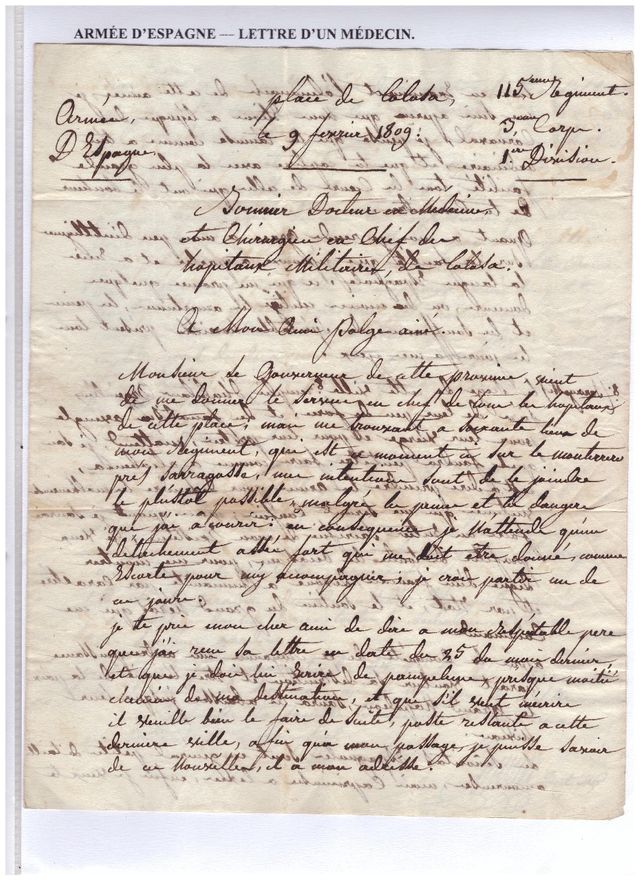 ARMÉE D'ESPAGNE — LETTRE D'UN MÉDECIN.
Armée,
D'Espagne,
place de Tolosa,
le 9 fevrier 1809:
115eme Regiment
3eme Corps.
1ere Division.
Docteur en Medecine,
et Chirurgien en Chef des
hopitaux Militaires, de Tolosa.
A Mon Ami Polge ainé.
Monsieur le Gouverneur de cette province, vient
de me donner le service en chef de tous les hopitaux
de cette place, mais me trouvant a soixante lieux de
mon regiment, qui est en moment ci sur le
pres Sarragosse, mes intentions sont de le joindre
le plustot possible, malgré les peines et les dangers
que j'ai a courir: en consequence je n'attends qu'un
détachement assés fort qui me doit etre donné, comme
Escorte pour m'y acompagner, je crois partir un de
ces jours.
je te prie mon cher ami de dire a mon respectable pere
que j'ai recu sa lettre en date du 25 du mois dernier,
et que je dois lui ecrire de pampelune presque moitié
chemin de ma destination, et que s'il veut m'ecrire
il veuille bien le faire de suite, poste restante a cette
derniere ville, afin qu'a mon passage, je puisse savoir
de ces nouvelles, et a mon adresse.